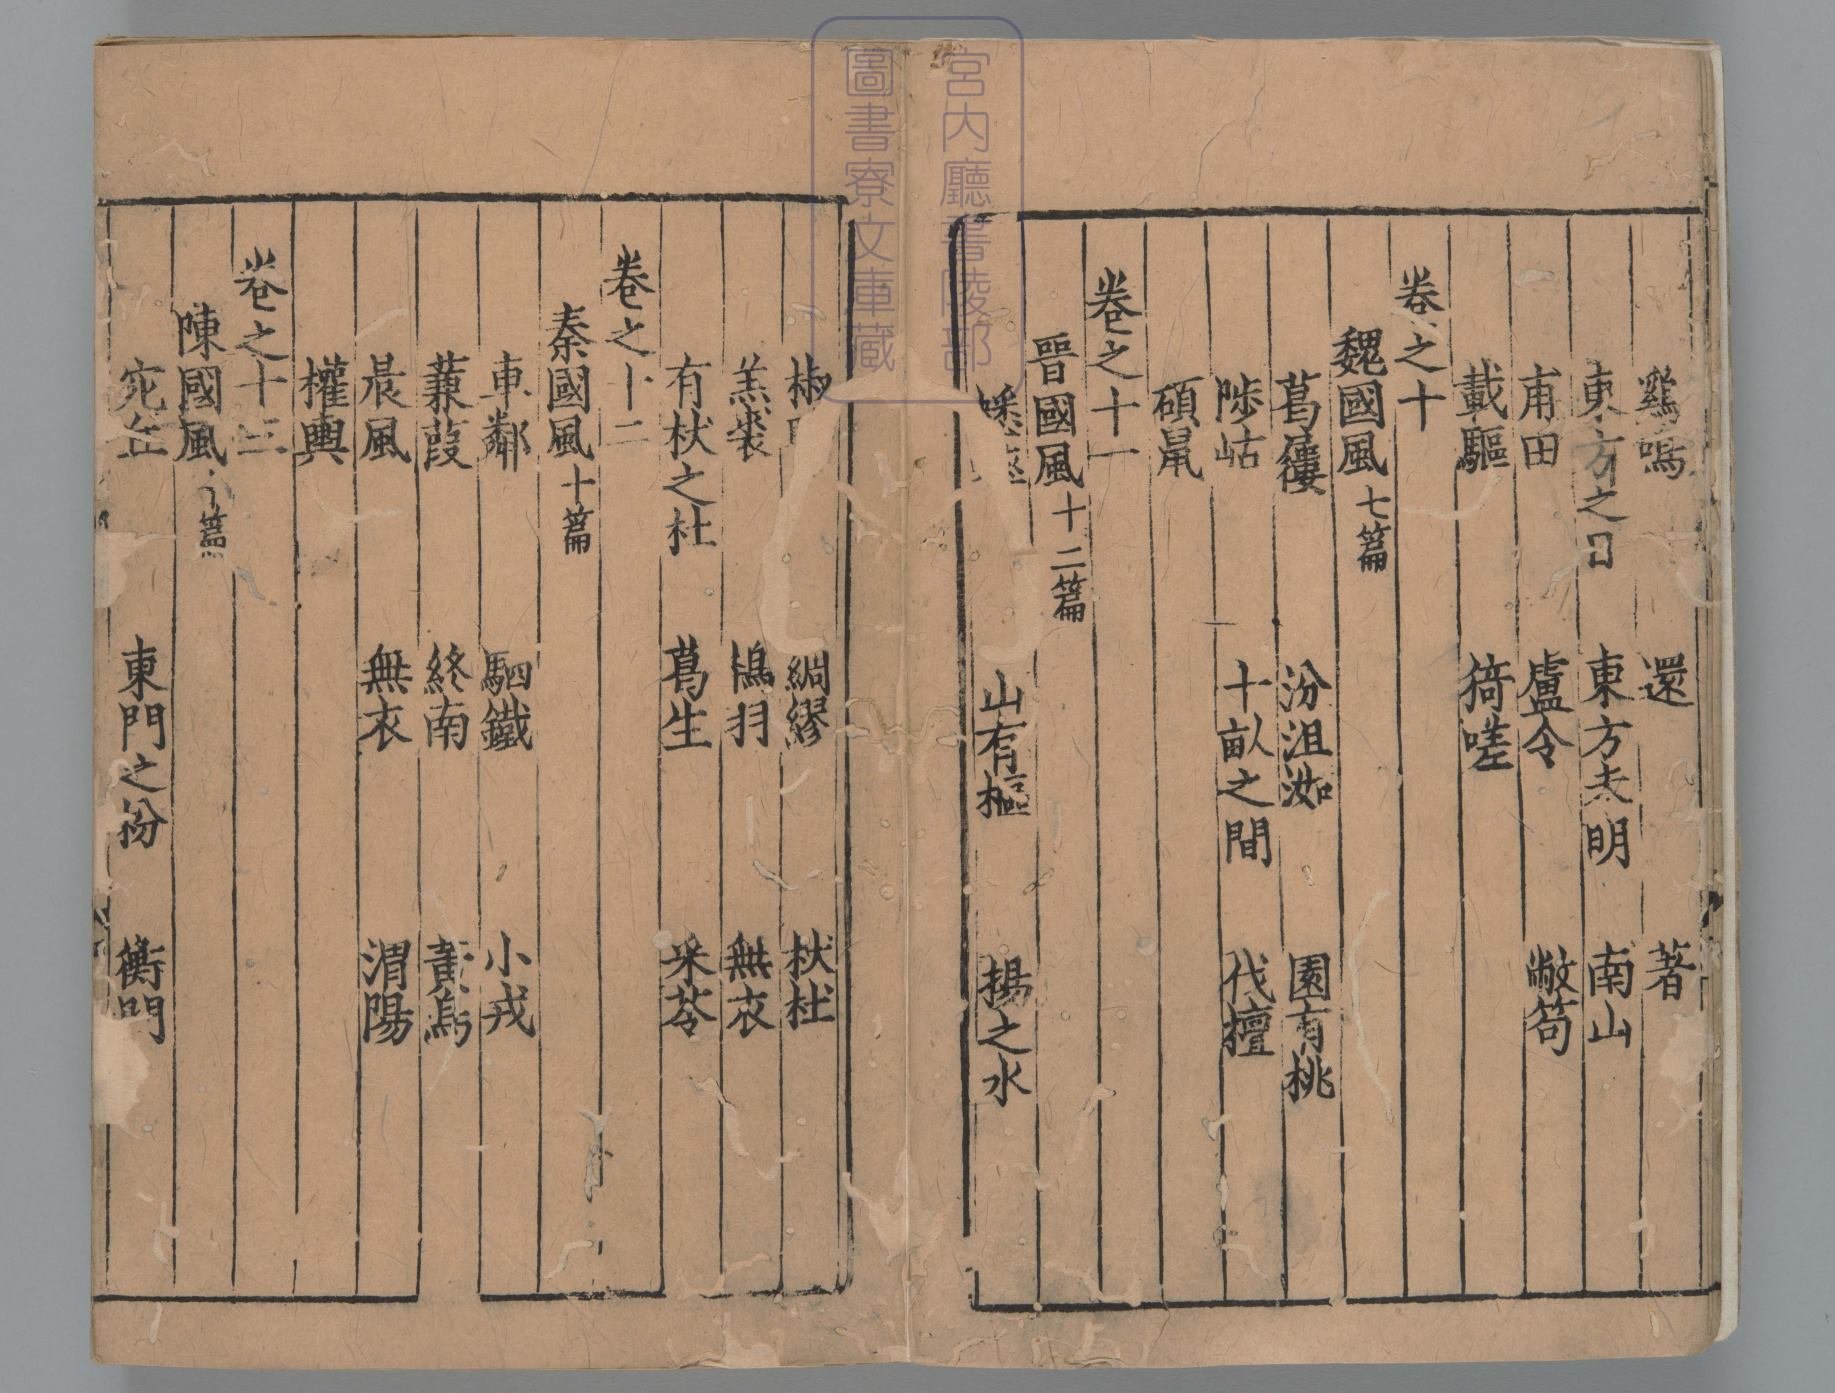 雞鳴　還　著
東方之日　東方未明　南山
甫田　盧令　敝笱
載驅　猗嗟
卷之十
魏國風七篇
葛屨　汾沮洳　園有桃
陟岵　十畝之間　伐檀
碩鼠
卷之十一
晉國風十二篇
蟋蟀　山有樞　揚之水
椒　綢繆　杕杜
羔裘　鴇羽　無衣
有杕之杜　葛生　采苓
卷之十二
秦國風十篇
車鄰　駟鐵　小戎
蒹葭　終南　黃鳥
晨風　無衣　渭陽
權輿
卷之十三
陳國風十篇
宛丘　東門之枌　衡門
宮内廳書陵部
圖書寮文庫藏